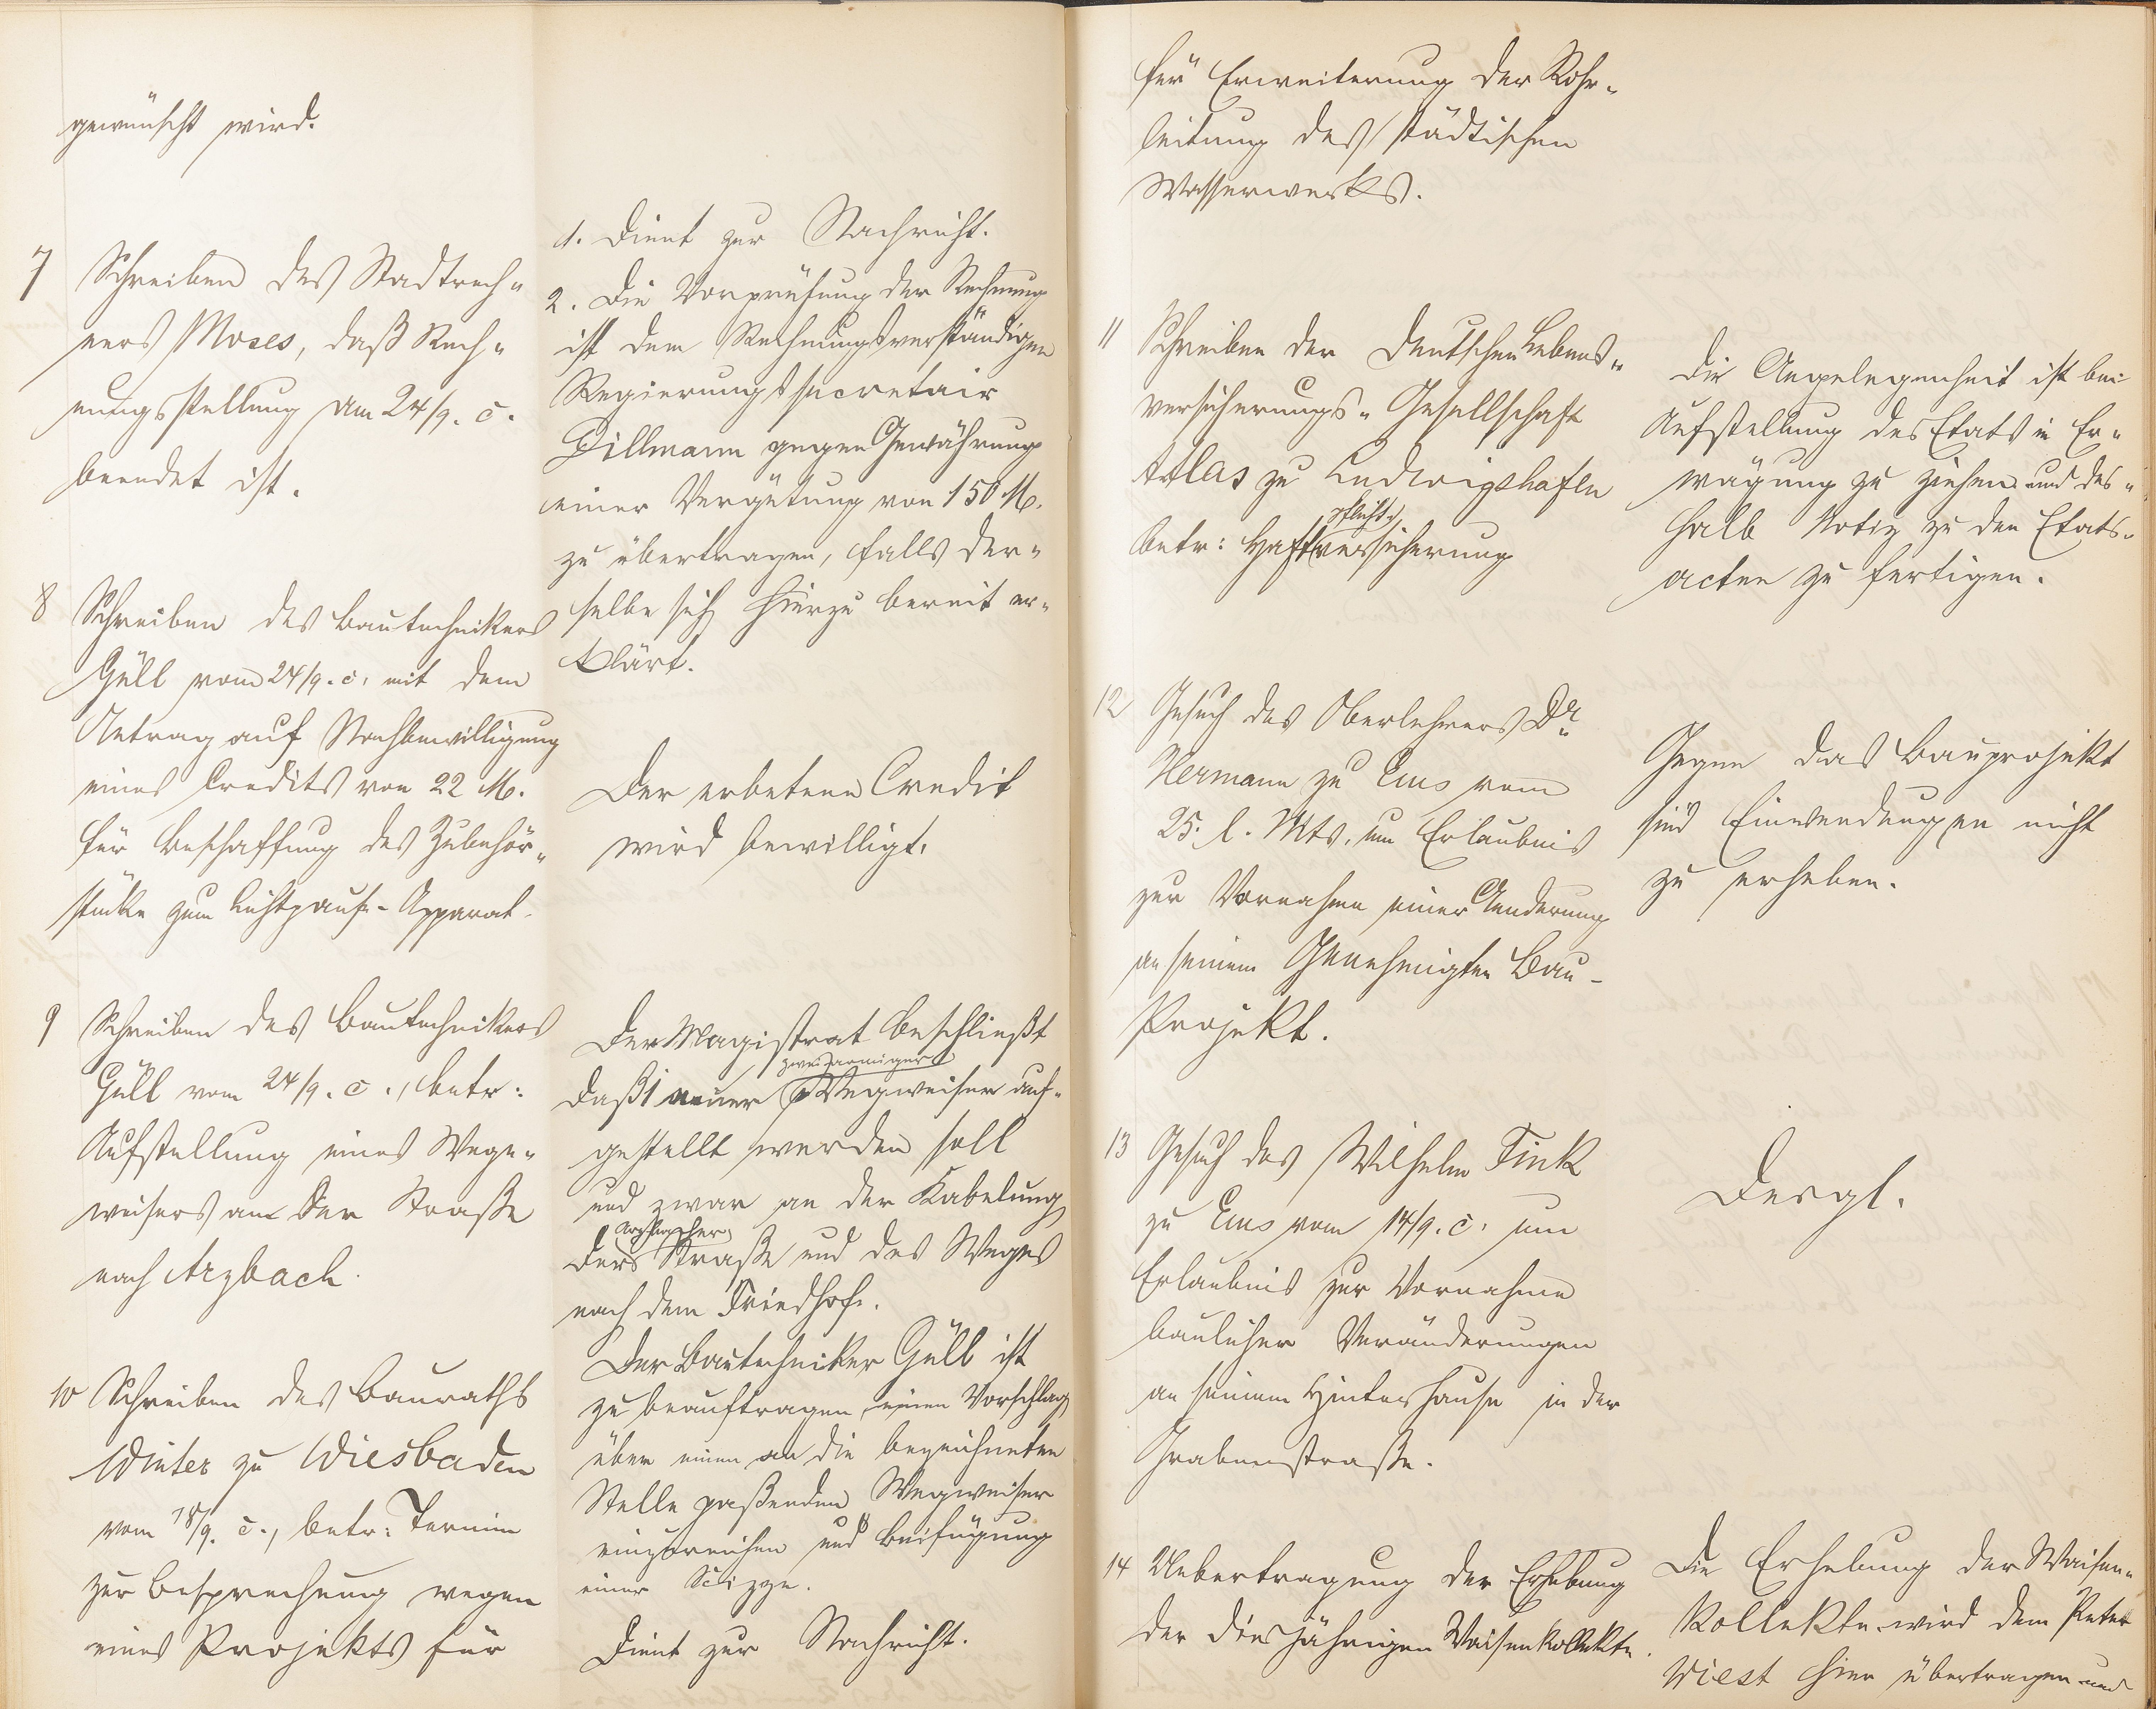 gewünscht wird.
7 Schreiben des Stadtrech-
ners Moses, daß Rech-
nungsstellung am 24/9. c.
beendet ist.
1. Dient zur Nachricht.
2. Die Vorprüfung der Rechnung
ist dem Rechnungsverständigen
Regierungssecretair
Dillmann gegen Gewährung
einer Vergütung von 150 M.
zu übertragen, falls der-
selbe sich hierzu bereit er-
klärt.
8 Schreiben des Bautechnikers
Güll vom 24/9. c. mit dem
Antrag auf Nachbewilligung
eines Credits von 22 M.
für Beschaffung des Zubehör-
stücke zum Lichtpause-Apparat.
Der erbetene Credit
wird bewilligt.
9 Schreiben des Bautechnikers
Güll vom 24/9. c., betr:
Aufstellung eines Wege-
weisers an der Straße
nach Arzbach.
Der Magistrat beschließt
daß 1 neuer zweiarmiger Wegweiser auf-
gestellt werden soll
und zwar an der Gabelung
der Arzbacher Straße und des Weges
nach dem Friedhofe.
Der Bautechniker Güll ist
zu beauftragen, einen Vorschlag
über einen an die bezeichneten
Stelle paßenden Wegweiser
einzureichen und Beifügung
einer Scizze.
10 Schreiben des Bauraths
Winter zu Wiesbaden
vom 18/9. c., betr: Termin
zur Besprechung wegen
eines Projekts für
Dient zur Nachricht.
für Erweiterung der Rohr-
leitung des städtischen
Wasserwerks.
11 Schreiben der Deutschen Lebens-
versicherungs-Gesellschaft
Atlas zu Ludwigshafen
betr: Haftpflichtversicherung
Die Angelegenheit ist bei
Aufstellung des Etats in Er-
wägung zu ziehen und des-
halb Notiz zu den Etats-
acten zu fertigen.
12 Gesuch des Oberlehrers Dr.
Hermann zu Ems vom
25. l. Mts. um Erlaubnis
zur Vornahme einer Aenderung
an seinem Genehmigten Bau-
Projekt.
Gegen das Bauprojekt
sind Einwendungen nicht
zu erheben.
13 Gesuch des Wilhelm Fink
zu Ems vom 14/9. c. um
Erlaubnis zur Vornahme
baulicher Veränderungen
an seinem Hinterhause in der
Grabenstraße.
Desgl.
14 Uebertragung der Erhebung
der diesjährigen Waisenkollekte.
Die Erhebung der Waisen-
kollekte wird dem Peter
Wiest hier übertragen und